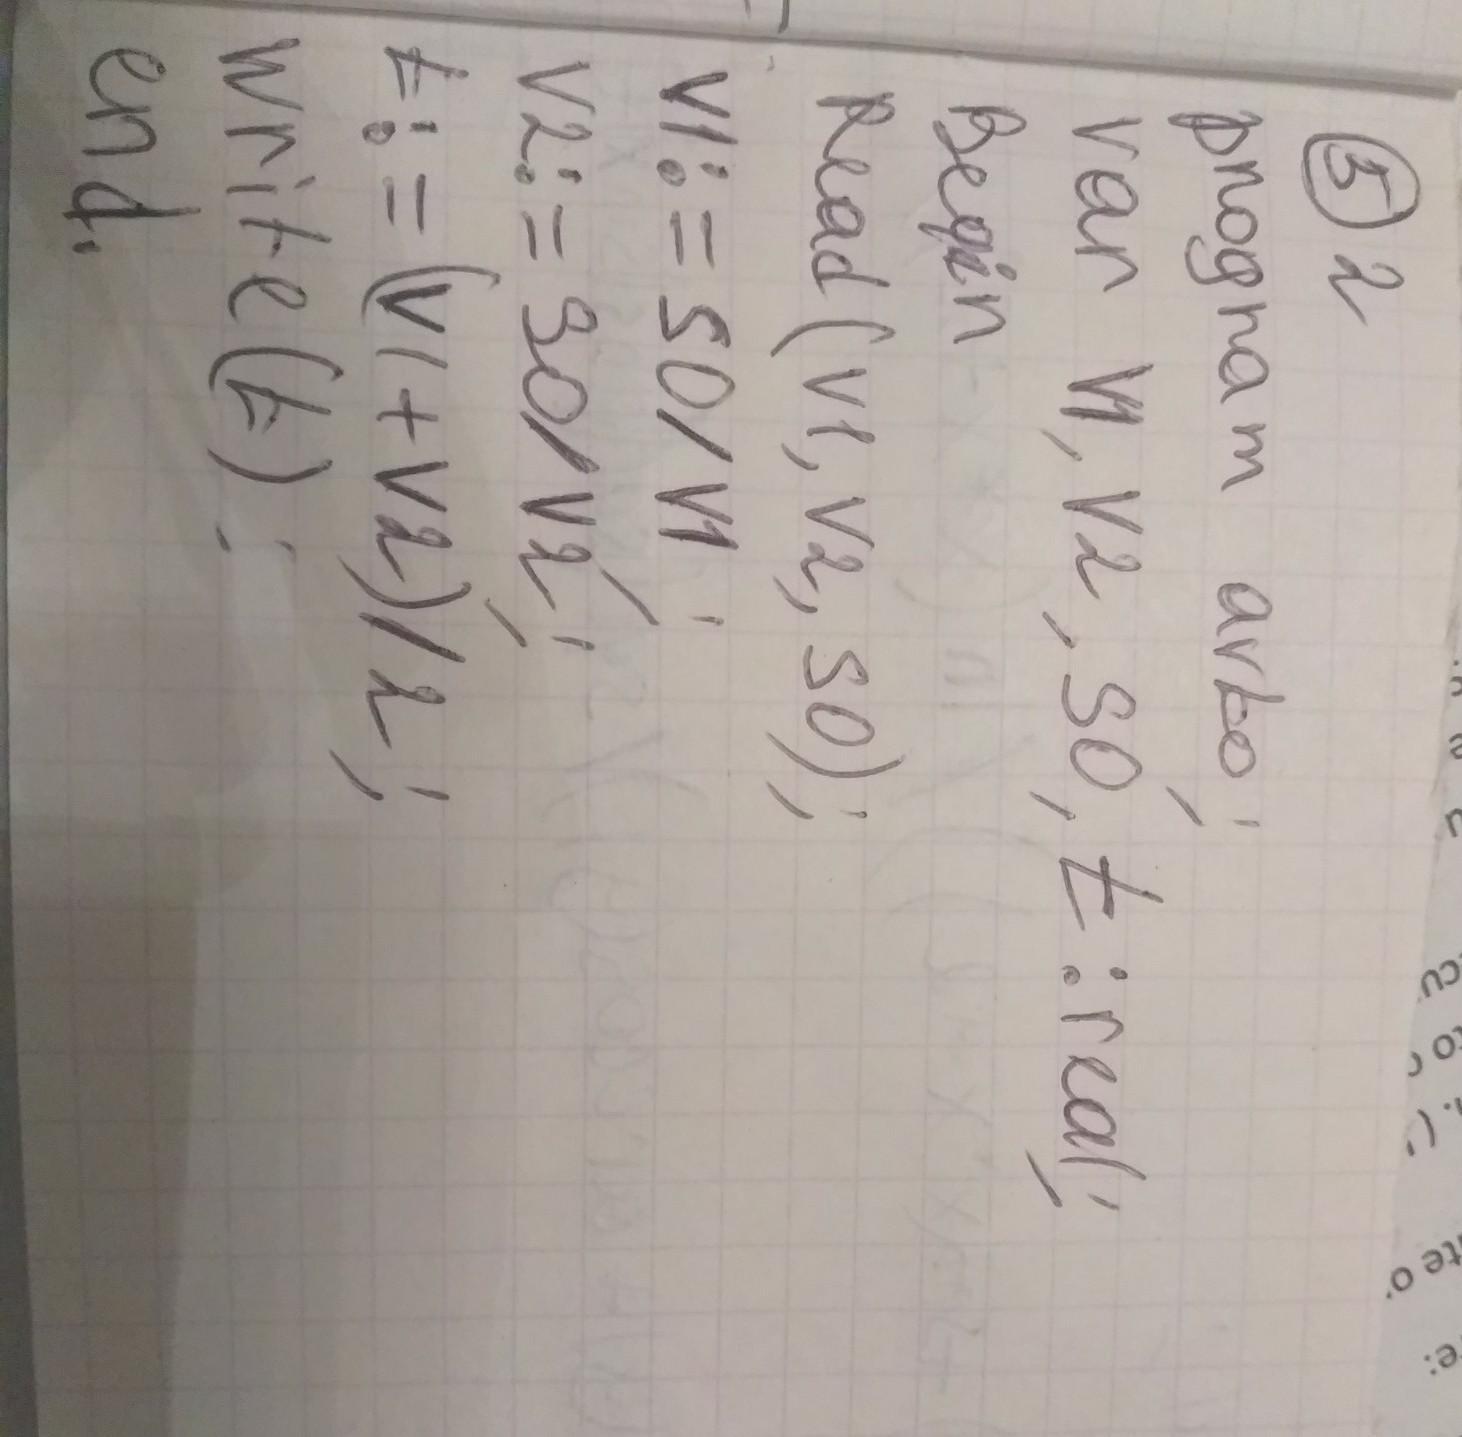 ⑤ 2
program avto;
var V1, V2, S0, t : real;
Begin
Read (V1, V2, S0);
V1 := S0/V1;
V2 := S0/V2;
t := (V1 + V2)/2;
write (t);
end.